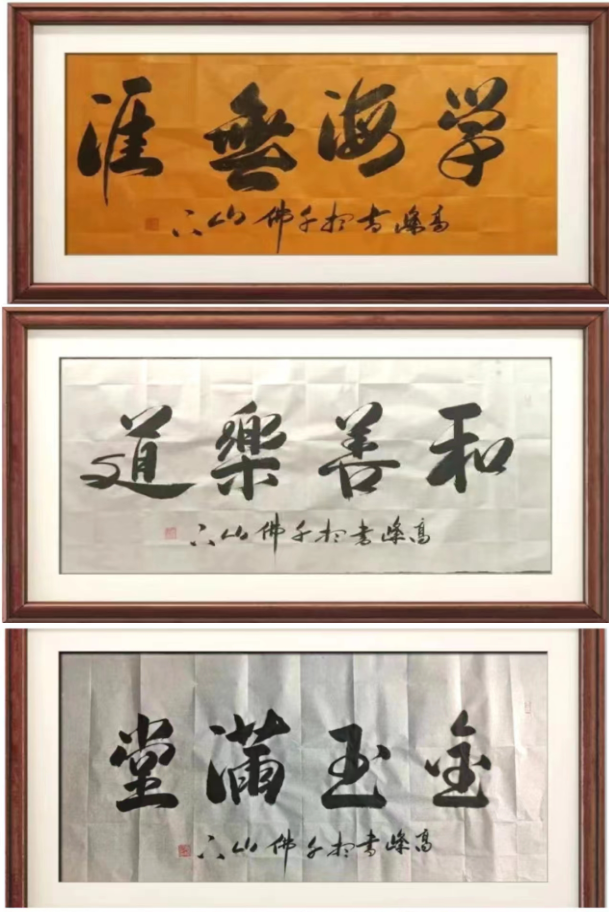 学海無涯
高峰书於千佛山下
和善樂道
高峰書於千佛山下
金玉满堂
高峰书於千佛山下